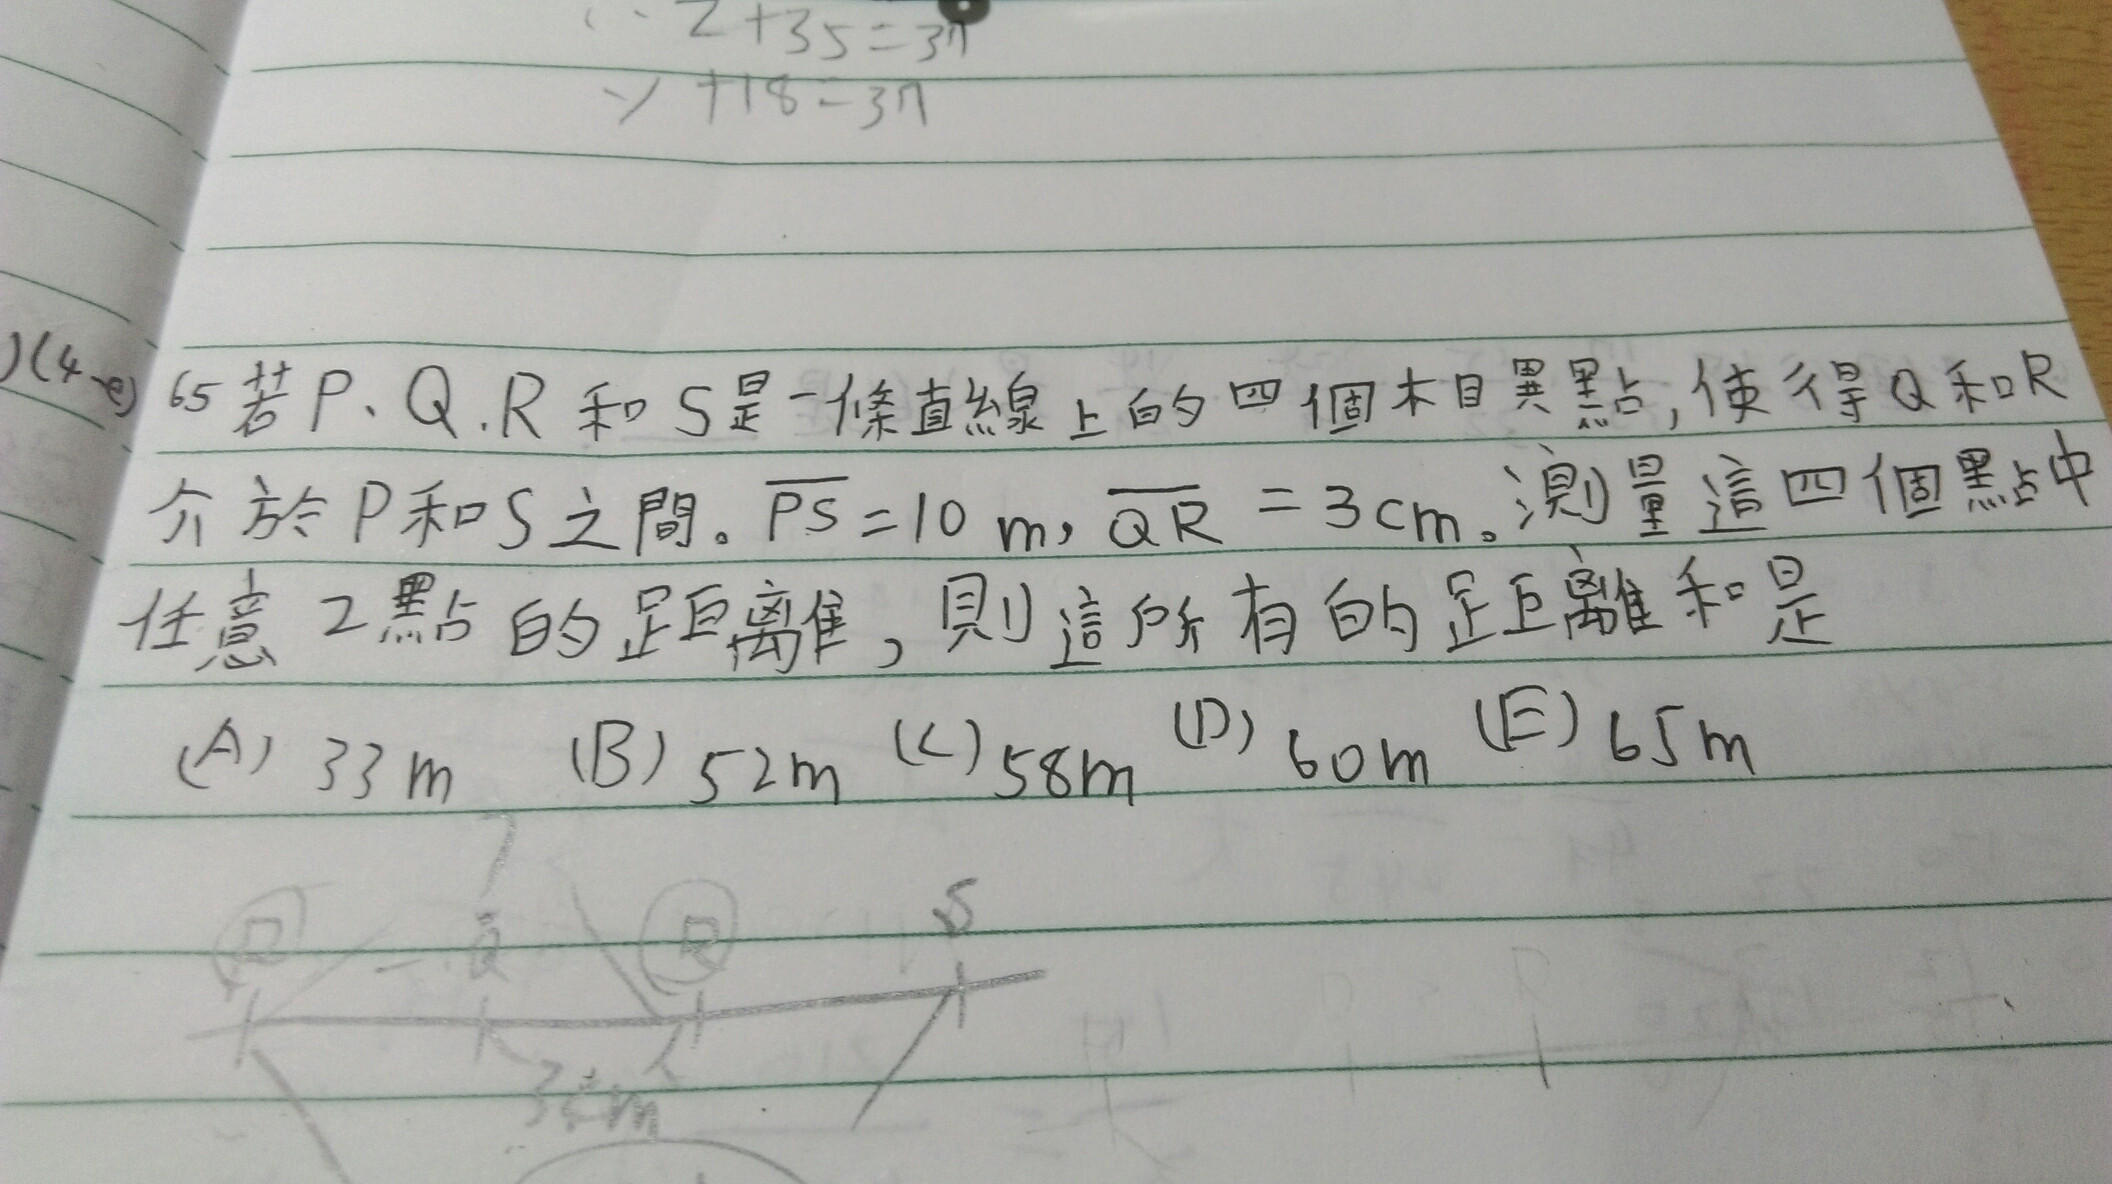 ∴ Z+35=37
∴ y +18=37
)(4-e) 65 若P、Q、R和S是一條直線上的四個相異點,使得Q和R
介於P和S之間。PS=10 m, QR = 3cm。測量這四個點中
任意2點的距離,則這所有的距離和是
(A) 33m (B) 52m (C) 58m (D) 60m (E) 65m
P Q R S
3cm